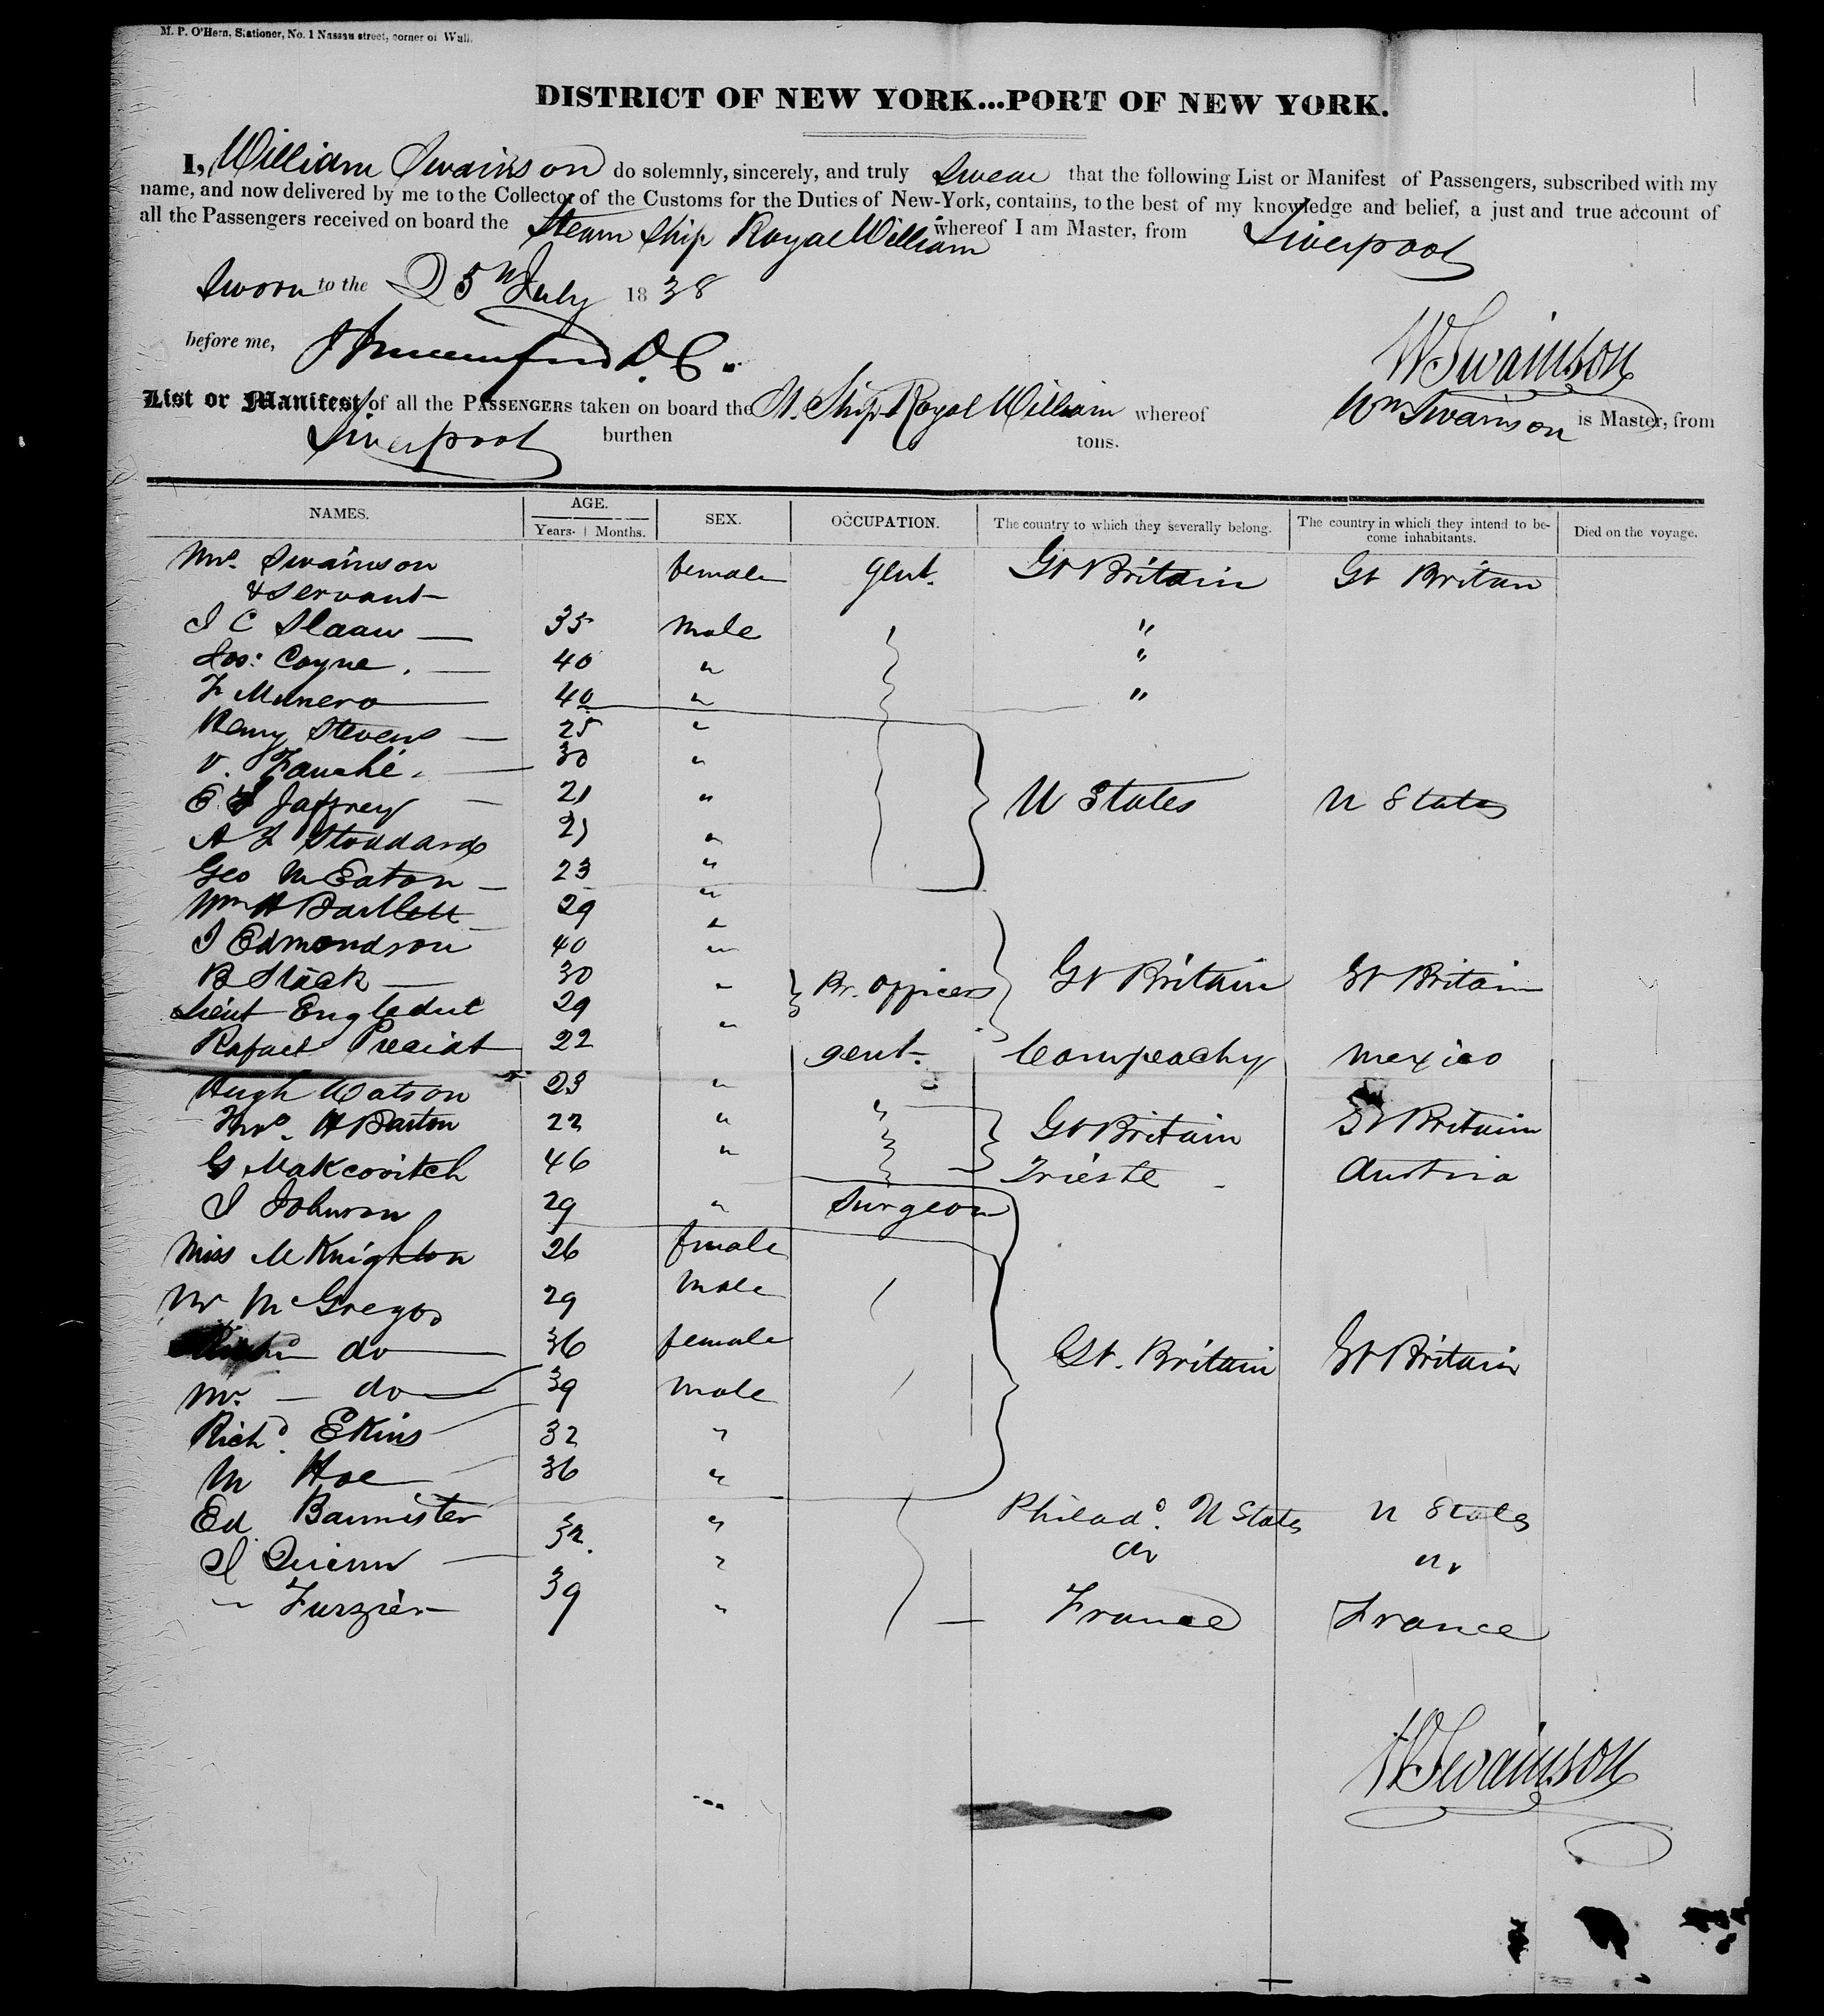 M. P. O'Hern, Stationer, No. 1 Nassau street, corner of Wall.
DISTRICT OF NEW YORK...PORT OF NEW YORK.
I, William Swainson do solemnly, sincerely, and truly Swear that the following List or Manifest of Passengers, subscribed with my
name, and now delivered by me to the Collector of the Customs for the Duties of New-York, contains, to the best of my knowledge and belief, a just and true account of
all the Passengers received on board the Steam Ship Royal William whereof I am Master, from Liverpool
Sworn to the 25th July 1838
before me, D. C.
W Swainson
List or Manifest of all the PASSENGERS taken on board the St. Ship Royal William whereof Wm Swainson is Master, from
Liverpool burthen tons.
NAMES. AGE. Years. Months. SEX. OCCUPATION. The country to which they severally belong. The country in which they intend to become inhabitants. Died on the voyage.
Mrs. Swainson female gent. Gt Britain Gt Britan
& servant
J C Slaaw 35 Male "
Jos: Coyne. 40 " "
F Munero 40 " "
Henry Stevens 25 "
V. Fauché. 30 "
E Jaffrey 21 " U States U States
A L Stoddard 21 "
Geo M Eaton 23 "
Wm H Bartlett 29 "
J Edmondson 40 "
B Slack 30 " Br. Officers Gt Britain Gt Britain
Lieut Engledue 29 "
Rafael Preciat 22 " gent. Campeachy Mexico
Hugh Watson 23 "
Thos. H Barton 22 " Gt Britain Gt Britain
G Makcovitch 46 " Trieste Austria
J Johnson 29 " Surgeon
Miss M Knighton 26 female
Mr McGregor 29 Male
do 36 female Gt. Britain Gt Britain
Mr. do 39 male
Richd. Ekins 32 "
M Hoe 36 "
Ed Bannister " Philada. U States U States
J Quinn 32. " do do
" Furzier 39 " France France
W Swainson